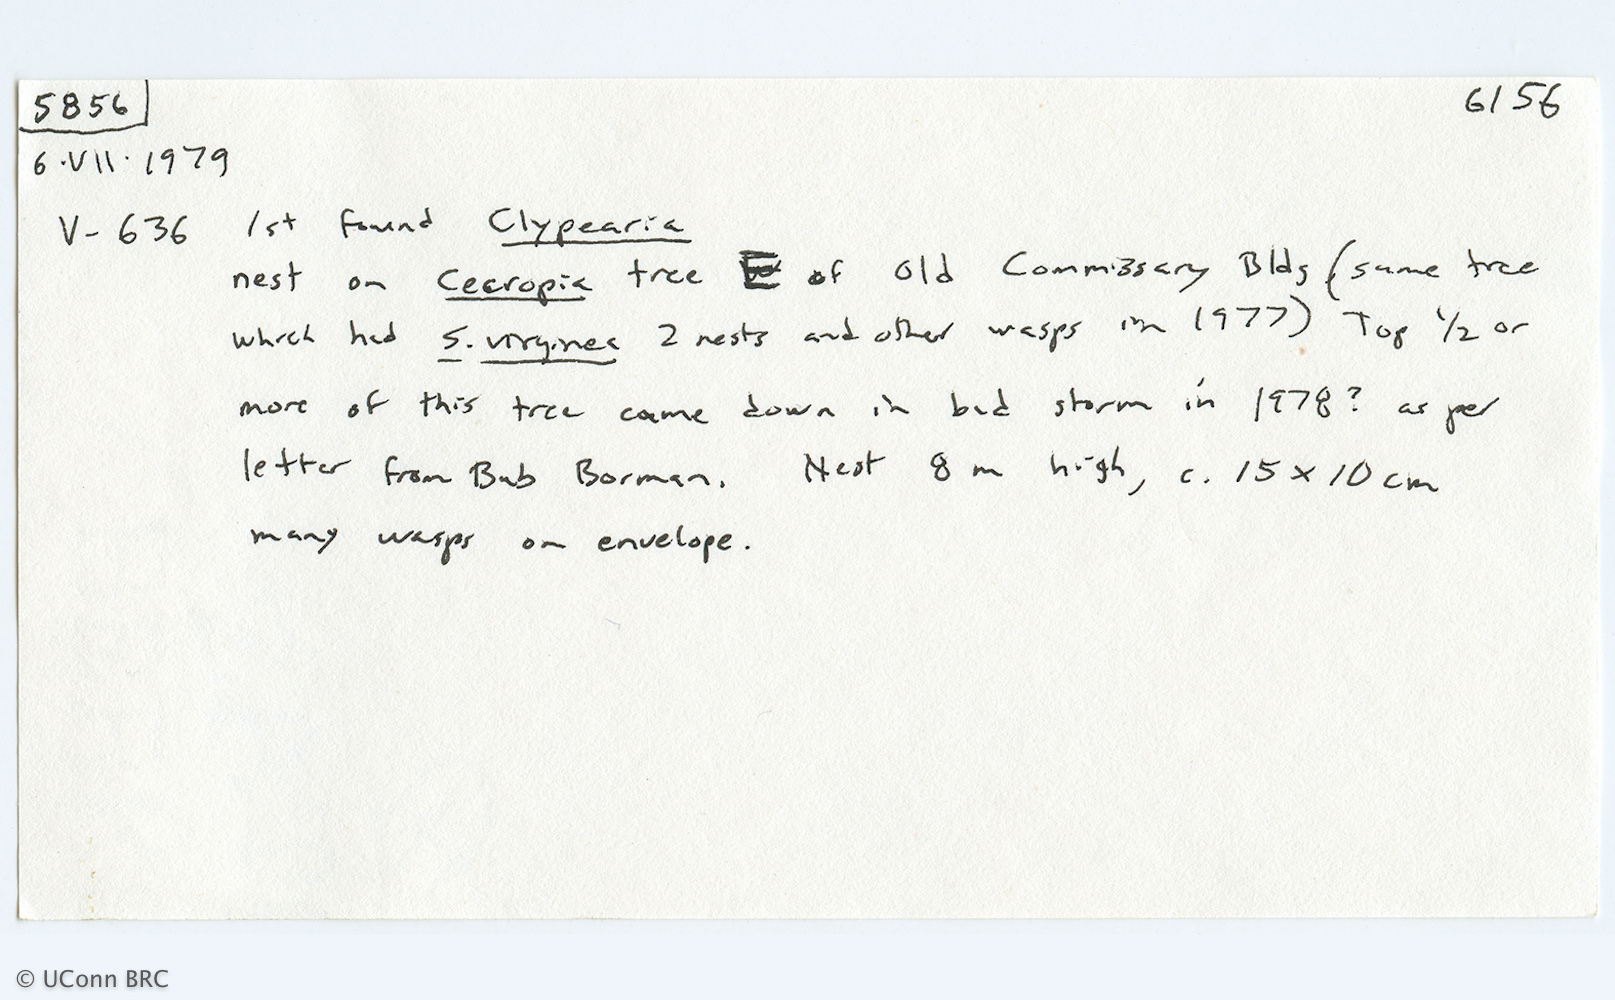 5856
6156
6·VII·1979
V-636 1st found Clypearia
nest on Cecropia tree E of Old Commissary Bldg (same tree
which had S. virginea 2 nests and other wasps in 1977) Top 1/2 or
more of this tree came down in bad storm in 1978? as per
letter from Bub Borman. Nest 8 m high, c. 15 x 10 cm
many wasps on envelope.
© UConn BRC